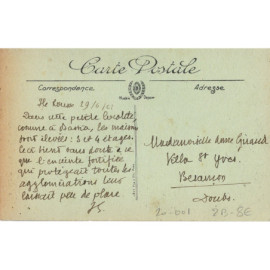 Carte Postale
Correspondance
Adresse
Dans cette petite localité,
comme à Bastia, les maisons
sont élevées : 3 et 4 étages.
Ceci tient sans doute à ce
que l'enceinte fortifiée
qui protégeait toutes les
agglomérations leur
laissait peu de place.
Mademoiselle Girard
Villa St Yves.
Besançon
Doubs.